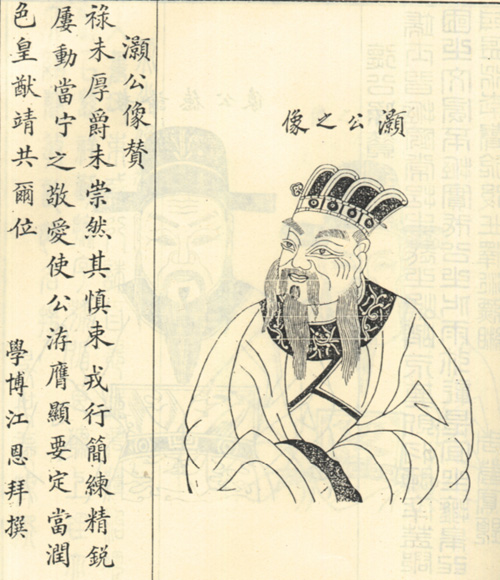 灝公之像
灝公像賛
祿未厚爵未崇然其慎東戎行簡練精銳
屢動當宁之敬愛使公洊膺顯要定當潤
色皇猷靖共爾位
學博江恩拜撰